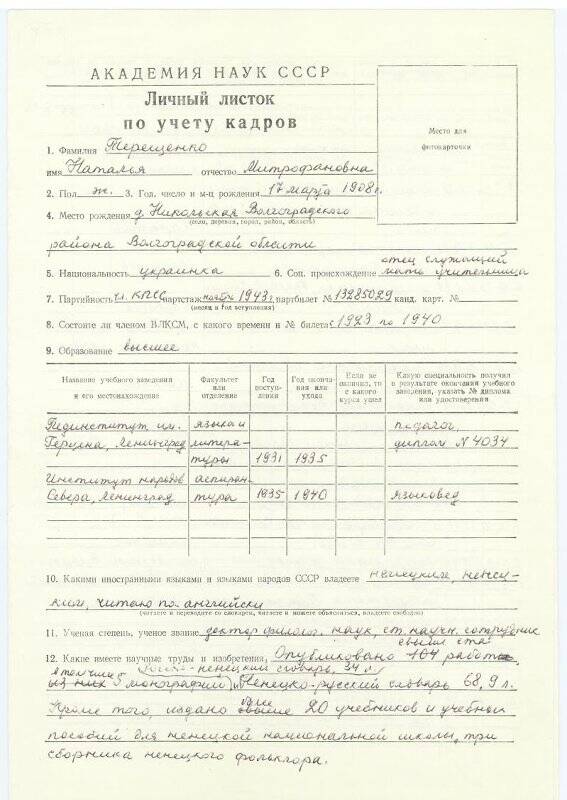 АКАДЕМИЯ НАУК СССР
Личный листок
по учету кадров
Место для
фотокарточки
1. Фамилия Терещенко
имя Наталья отчество Митрофановна
2. Пол ж. 3. Год, число и м-ц рождения 17 марта 1908 г.
4. Место рождения д. Никольская Волгоградского
(село, деревня, город, район, область)
района Волгоградской области
5. Национальность украинка 6. Соц. происхождение отец служащий
мать учительница
7. Партийность чл. КПСС партстаж ноябрь 1943 г. партбилет № 13285029 канд. карт. №
(месяц и год вступления)
8. Состоите ли членом ВЛКСМ, с какого времени и № билета с 1923 по 1940
9. Образование высшее
Название учебного заведения и его местонахождение
Факультет или отделение
Год поступления
Год окончания или ухода
Если не окончил, то с какого курса ушел
Какую специальность получил в результате окончания учебного заведения, указать № диплома или удостоверения
Пединститут им. языка и педагог,
Герцена, Ленинград литера- диплом № 4034
туры 1931 1935
Институт народов аспиран-
Севера, Ленинград тура 1935 1940 языковед
10. Какими иностранными языками и языками народов СССР владеете ненецким, ненец-
ким, читаю по-английски
(читаете и переводите со словарем, читаете и можете объясняться, владеете свободно)
11. Ученая степень, ученое звание доктор филолог. наук, ст. научн. сотрудник
свыше ста
12. Какие имеете научные труды и изобретения Опубликовано 104 работ
в том числе ненецкий словарь, 34 л.
из них 5 монографий), Ненецко-русский словарь 68,9 л.
Кроме того, издано свыше 20 учебников и учебных
пособий для ненецкой национальной школы, три
сборника ненецкого фольклора.